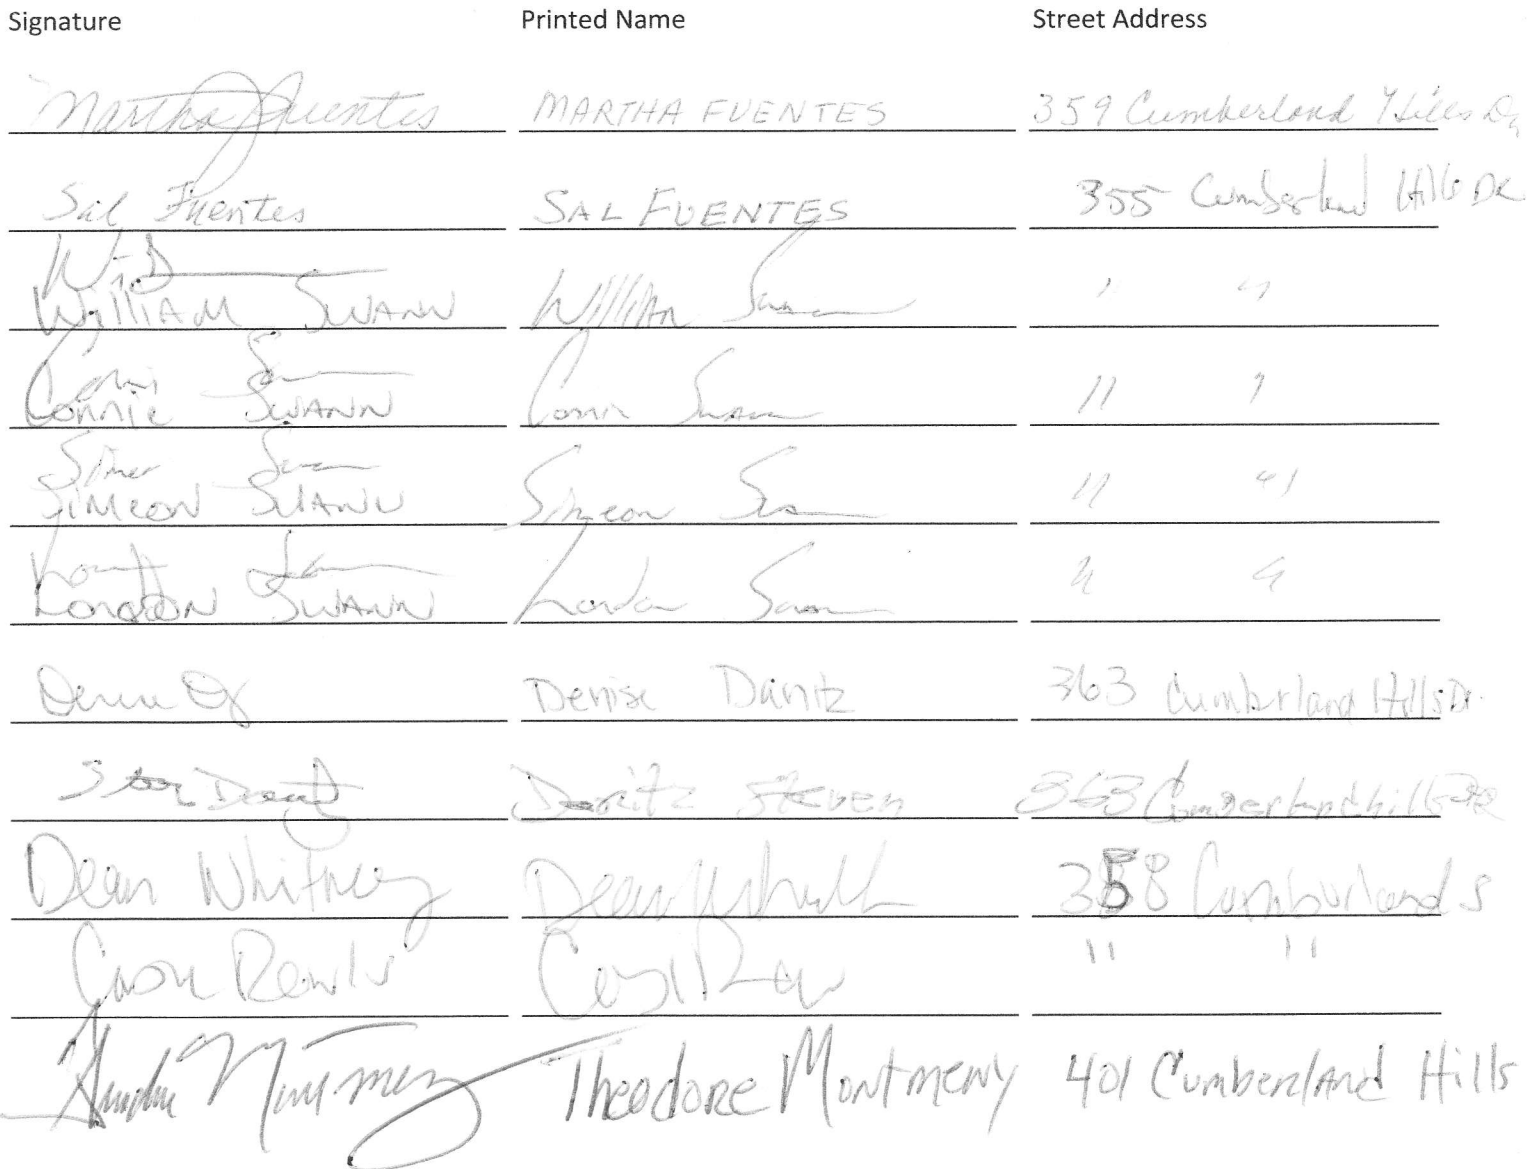 Signature Printed Name Street Address
Martha Fuentes MARTHA FUENTES 359 Cumberland Hills Dr
Sal Fuentes SAL FUENTES 355 Cumberland Hills DR
WILLIAM SWANN William Swann " "
Connie Swann
CONNIE SWANN Connie Swann " "
SIMEON SWANN Simeon Swann " "
LONDON SWANN London Swann " "
Denise Denise Danitz 363 Cumberland Hills Dr.
Danitz Steven 363 Cumberland hills DR
Dean Whitney Dean 358 Cumburland s
" "
Theodore Montmeny 401 Cumberland Hills